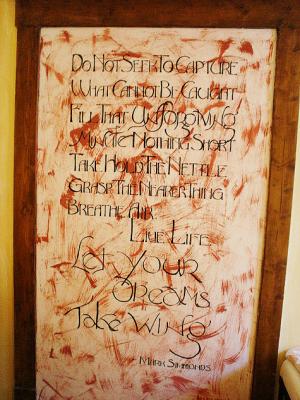 Do Not Seek To Capture
What Cannot Be Caught
Fill That Unforgiving
Minute Nothing Short
Take Hold The Nettle
Grasp The Nearer Thing
Breathe Air
Live Life
Let Your
Dreams
Take Wing
- Mark Simmonds